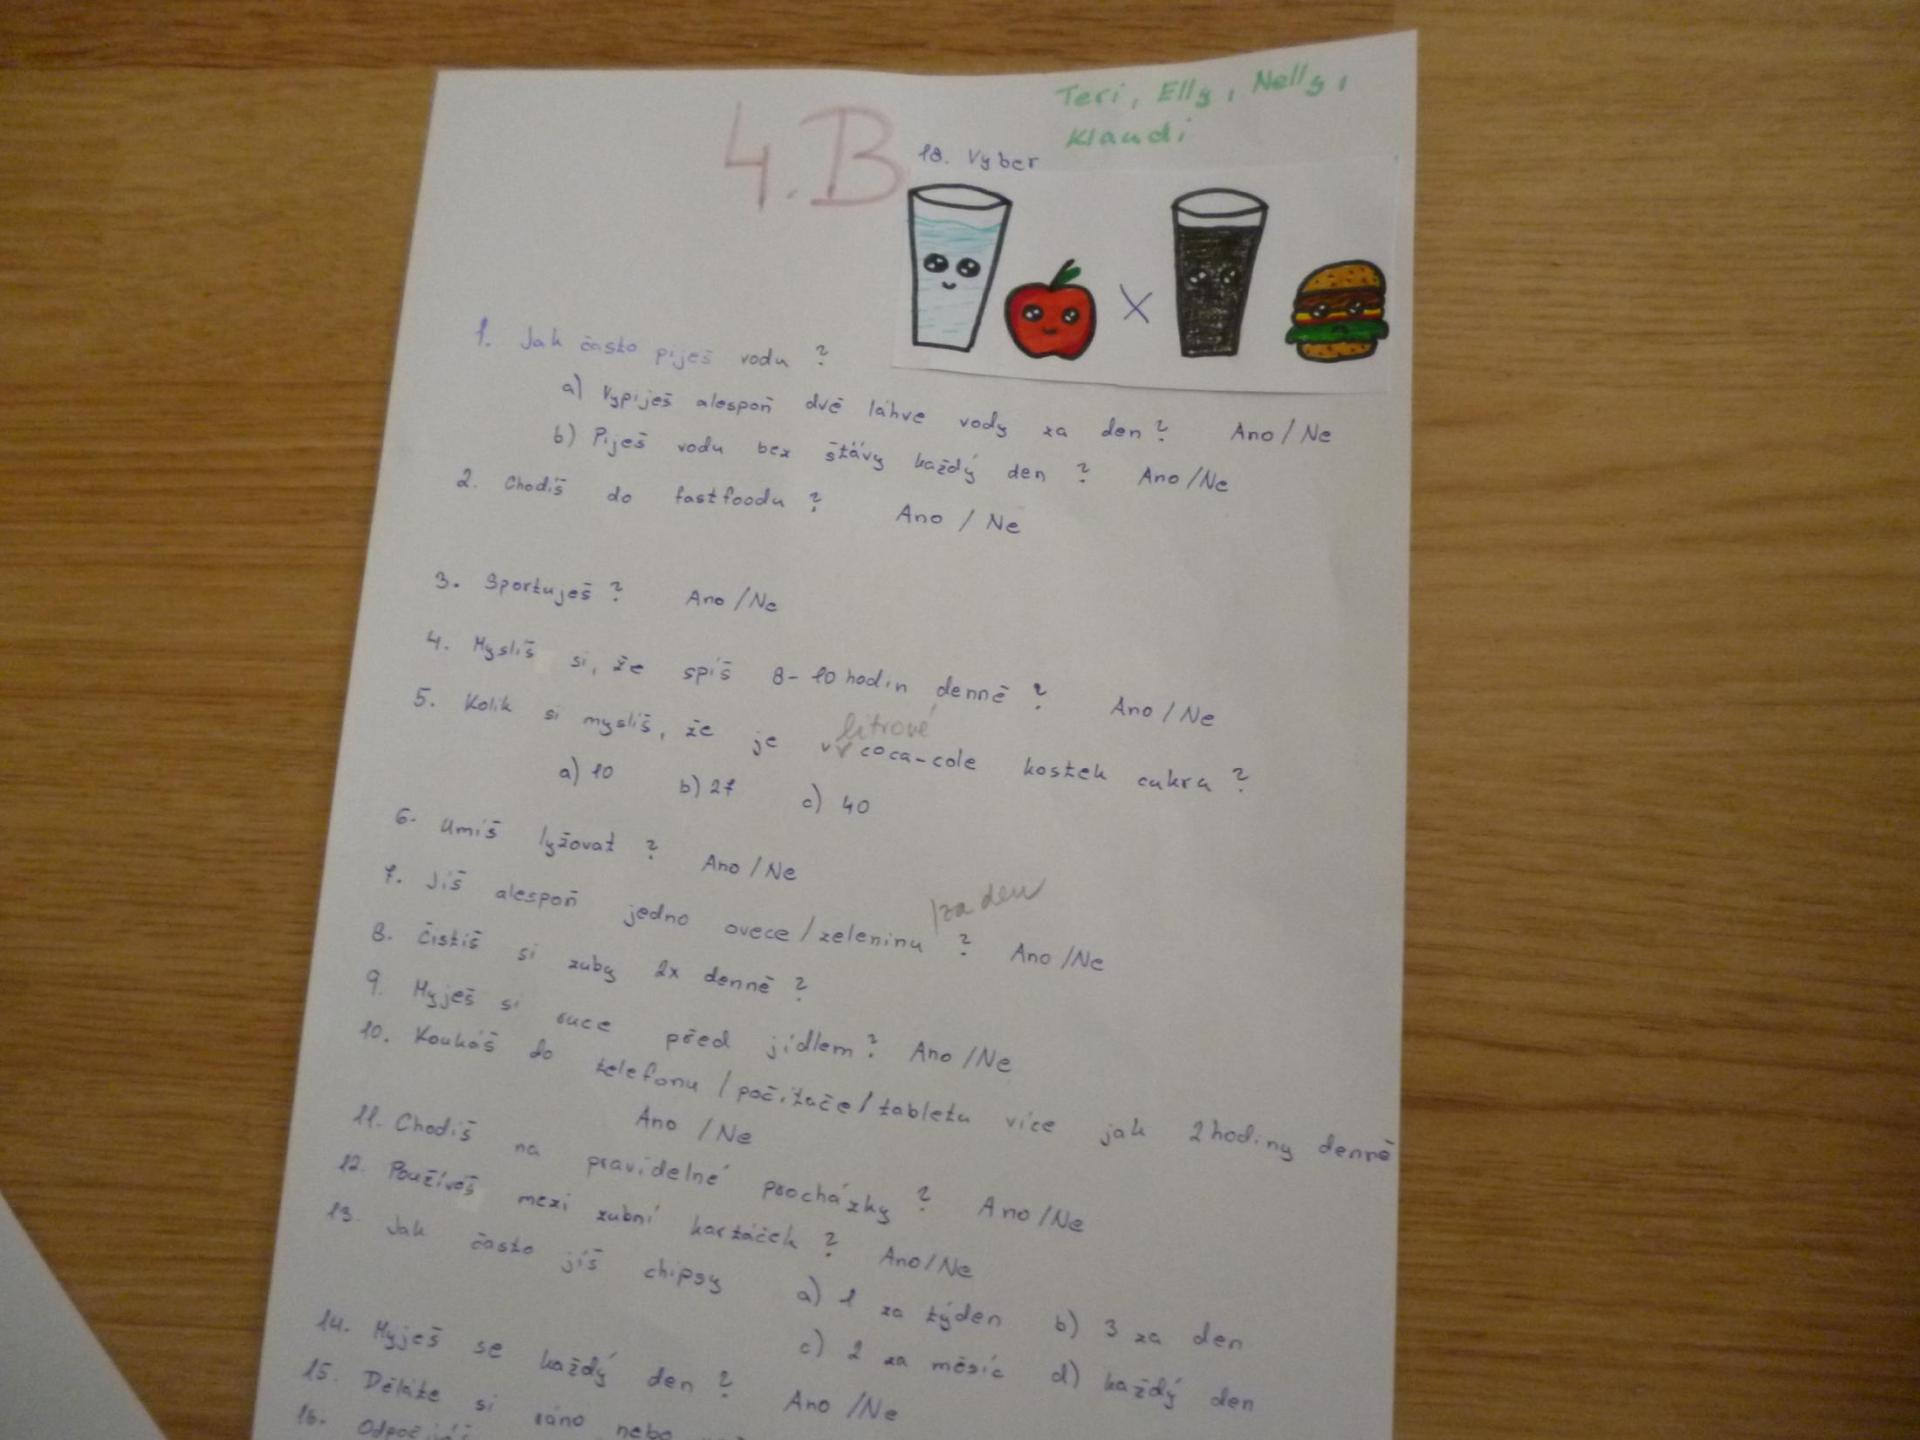 4.B
Teri, Elly, Nelly,
Klaudi
18. Vyber
X
1. Jak často piješ vodu ?
a) Vypiješ alespoň dvě láhve vody za den ? Ano / Ne
b) Piješ vodu bez štávy každý den ? Ano / Ne
2. Chodíš do fastfoodu ? Ano / Ne
3. Sportuješ ? Ano / Ne
4. Myslíš si, že spíš 8-10 hodin denně ? Ano / Ne
5. Kolik si myslíš, že je v litrové coca-cole kostek cukru ?
a) 10 b) 27 c) 40
6. Umíš lyžovat ? Ano / Ne
7. Jíš alespoň jedno ovece / zeleninu za den ? Ano / Ne
8. Čistíš si zuby 2x denně ?
9. Myješ si ruce před jídlem ? Ano / Ne
10. Koukáš do telefonu / počítače / tabletu více jak 2 hodiny denně
Ano / Ne
11. Chodíš na pravidelné procházky ? Ano / Ne
12. Používáš mezi zubní kartáček ? Ano / Ne
13. Jak často jíš chipsy a) 1 za týden b) 3 za den
c) 2 za měsíc d) každý den
14. Myješ se každý den ? Ano / Ne
15. Děláte si ráno nebo
16.